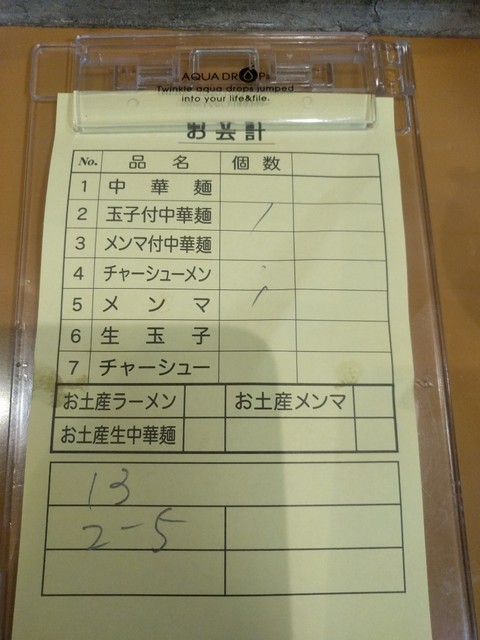 AQUA DROPs
Twinkle aqua drops jumped
into your life&file.
お会計
No. 品名 個数
1 中華麺
2 玉子付中華麺 /
3 メンマ付中華麺
4 チャーシューメン
5 メンマ /
6 生玉子
7 チャーシュー
お土産ラーメン お土産メンマ
お土産生中華麺
13
2-5